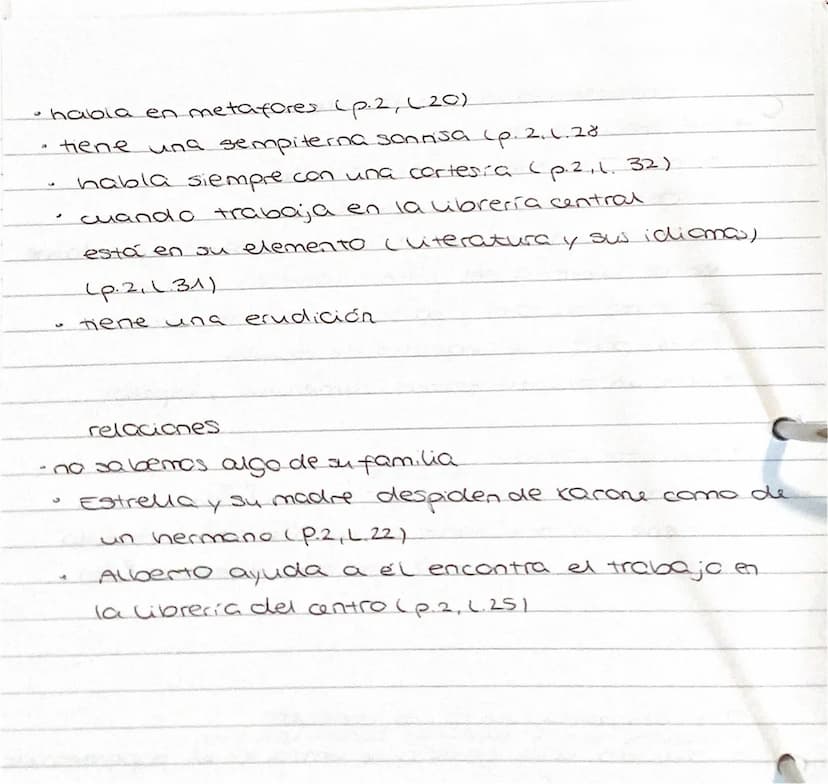 • habla en metafores (p.2, L20)
• tiene una sempiterna sonrisa (p. 2, L.28
• habla siempre con una cortesía (p.2, L. 32)
• cuando trabaja en la librería central
está en su elemento (literatura y sus idiomas)
(p.2, L.31)
• tiene una erudición
relaciones
• no sabemos algo de su familia
• Estrella y su madre despiden de Karone como de
un hermano (p.2, L.22)
• Alberto ayuda a él encontra el trabajo en
la librería del centro (p.2, L.25)